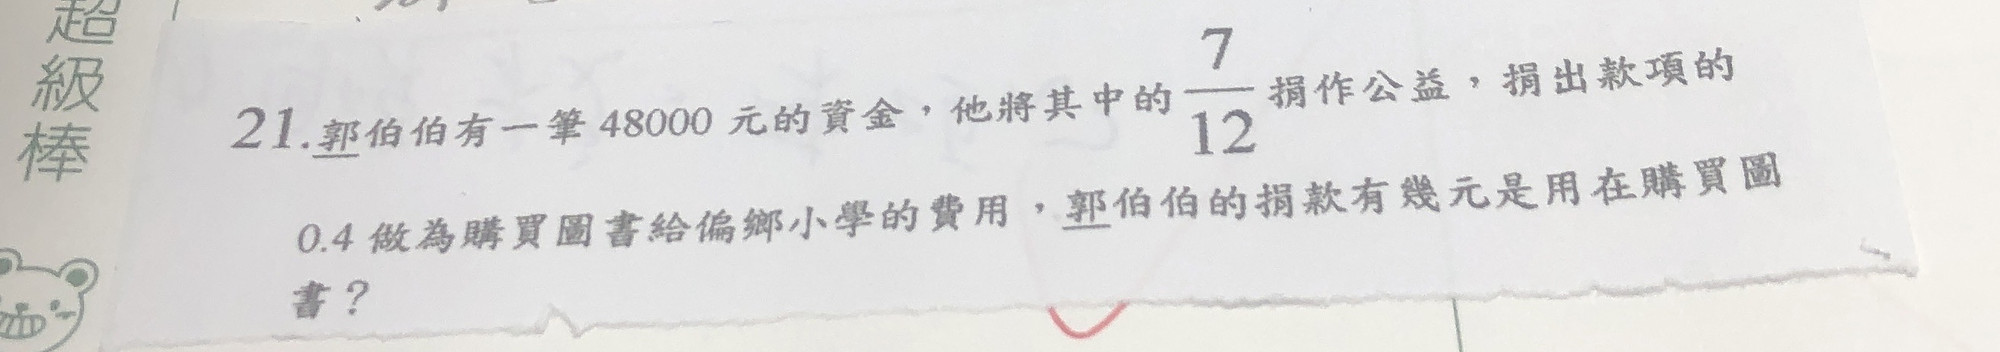 超級棒
21.郭伯伯有一筆 48000 元的資金，他將其中的 7/12 捐作公益，捐出款項的
0.4 做為購買圖書給偏鄉小學的費用，郭伯伯的捐款有幾元是用在購買圖
書？